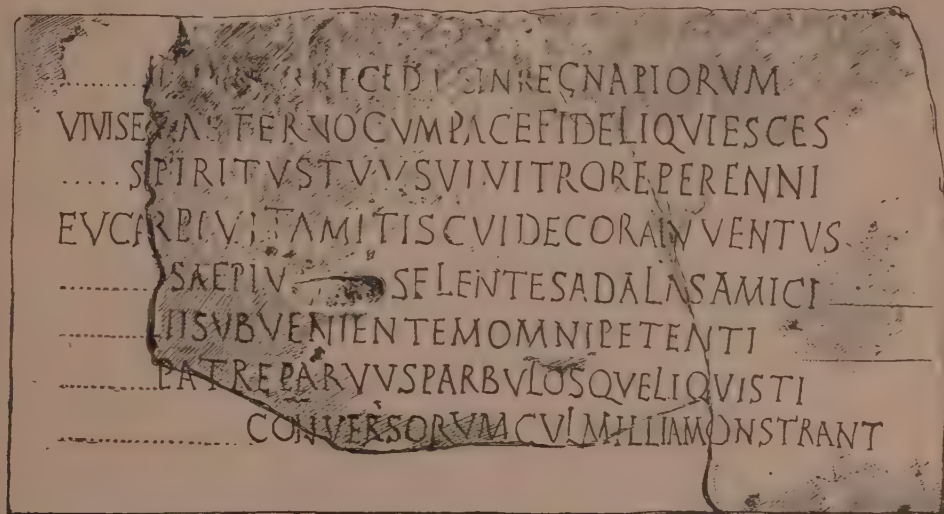 CEDISINREGNAPIORVM
VIVISE ASTERNOCVMPACEFIDELIQVIESCES
SPIRITVSTVVSVIVITROREPERENNI
EVCARPIVITAMITISCVIDECORAIVVENTVS
SAEPIV SFLENTESADALNSAMICI
LIISVBVENIENTEMOMNIPETENTI
PATREPARVVSPARBVLOSQVELIQVISTI
CONVERSORVMCVLMILLIAMONSTRANT